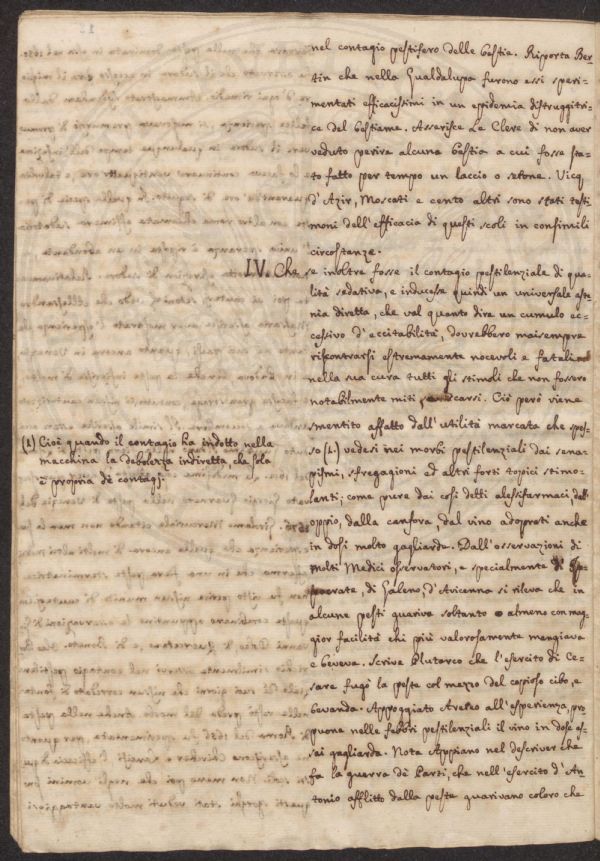 nel contagio pestifero delle bestie. Riporta Ber-
tin che nella Gualdalupa furono essi speri-
mentati efficacissimi in un epidemia distruggitri-
ce del bestiame. Asserisce Le Clerc di non aver
veduto perire alcuna bestia a cui fosse sta-
to fatto per tempo un laccio o setone. Vicq
d'Azir, Moscati e cento altri sono stati testi
moni dell'efficacia di questi scoli in consimili
circostanze.
IV. Che se inoltre fosse il contagio pestilenziale di qua-
lità sedativa, e inducesse quindi un universale aste
nia diretta, che val quanto dire un cumulo ec-
cessivo d'eccitabilità, dovrebbero maisempre
riscontrarsi estremamente nocevoli e fatali
nella sua cura tutti gli stimoli che non fossero
notabilmente miti e scarsi. Ciò però viene
smentito affatto dall'utilità marcata che spes-
so (1) vedesi nei morbi pestilenziali dai sena-
pismi, sfregagioni ed altri forti topici stimo-
lanti; come pure dai così detti alessifarmaci, dall'
oppio, dalla canfora dal vino adoprati anche
in dosi molto gagliarde. Dall'osservazioni di
molti Medici osservatori, e specialmente d'Ip-
pocrate, di Galeno, d'Avicenna si rileva che in
alcune pesti guariva soltanto o almeno con mag
gior facilità chi più valorosamente mangiava
e beveva. Scrive Plutarco che l'esercito di Ce-
sare fugò la peste col mezzo del copioso cibo, e
bevanda. Appoggiato Areteo all'esperienza, pro
puone nelle febbri pestilenziali il vino in dose as-
sai gagliarda. Nota Appiano nel descriver che
fa la guerra dè Parti, che nell'esercito d'An
tonio afflitto dalla peste guarivano coloro che
(1) Cioè quando il contagio ha indotto nella
macchina la debolezza indiretta che sola
è propria dè contagj.